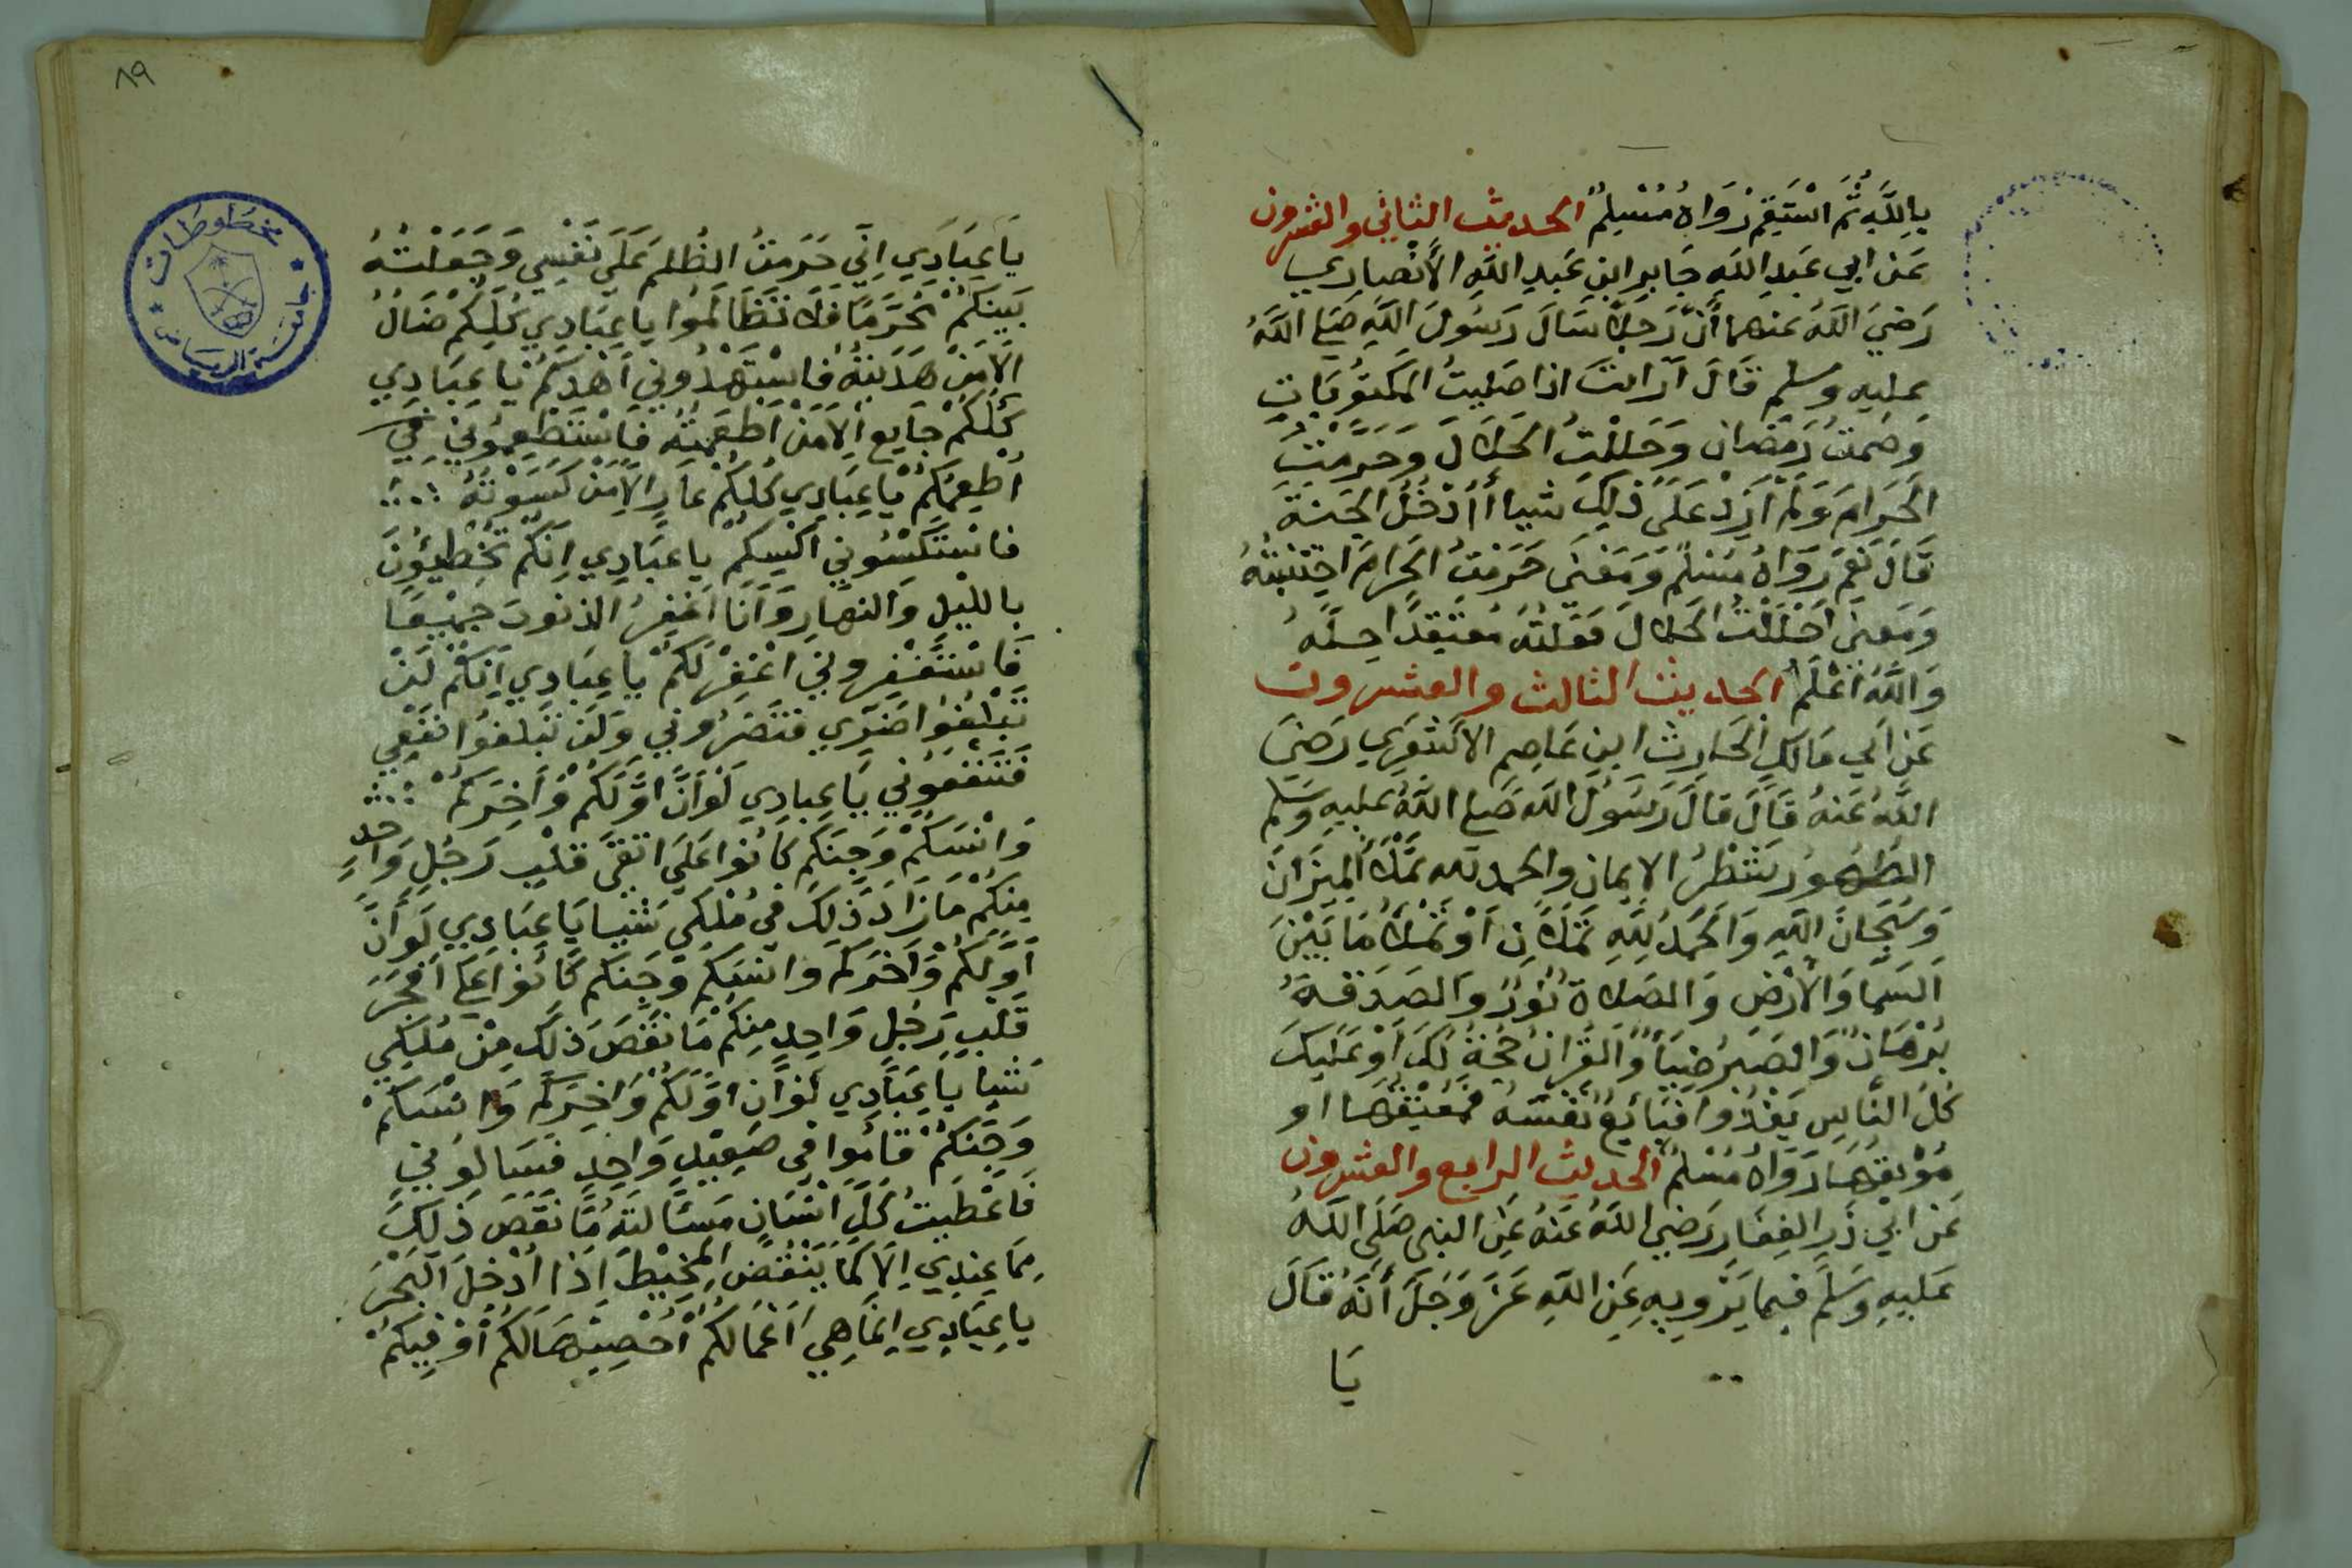 بِاللَّهِ ثُمَّ اسْتَقِمْ رَوَاهُ مُسْلِمٌ الحديث الثاني والعشرون
عَن ابي عَبدِ اللَّهِ جَابِرِ ابنِ عَبدِ اللَّهِ الأَنْصارِي
رَضيَ اللَّهُ عَنهما أَنَّ رَجلًا سَالَ رَسُولَ اللَّهِ صَلى اللَّهُ
عليهِ وسلم قَالَ أرَايتَ اذا صَليتُ المكتُوبَاتِ
وَصُمتُ رَمَضانَ وَحَللْتُ الحَلَالَ وَحَرَّمْتُ
الحَرَامَ وَلَمْ أزِدْ عَلَى ذٰلِكَ شيا أَأَدْخُلُ الجَنةَ
قَالَ نَعَمْ رَوَاهُ مُسْلِمٌ وَمَعْنَى حَرَمْتُ الحَرَامَ اجتَنَبتُهُ
وَمَعنَى احْلَلْتُ الحَلالَ فَعَلتُهُ مُعتَقِدًا حِلَّهُ
وَاللَّهُ اَعْلَمُ الحديث الثالث والعشرون
عَن اَبي مَالكٍ الحَارِث ابنِ عَاصِمٍ الاَشْعَرِي رَضيَ
اللَّهُ عَنهُ قَالَ قالَ رَسُولُ اللَّهِ صَلى اللَّهُ عليهِ وَسَلم
الطُهُورُ شَطْرُ الاِيمانِ والحمد لله تَمْلَأُ المِيزَانَ
وَسُبحَانَ اللَّهِ وَالحَمدُ لِلَّهِ تَملَآنِ أَوْ تَمْلَأُ مَا بَيْنَ
السَمَا وَالأَرْضِ وَالصَلاةُ نُورٌ وَالصَدَقةُ
بُرْهَانٌ وَالصَبرُ ضِيَاً وَالقُرْانُ حُجَةٌ لَكَ اَوْ عَلَيكَ
كُلُ النَاسِ يَغْدُوا فَبَايِعٌ نَفْسَهُ فَمُعْتِقُهَا او
مُوْبِقُهَا رَوَاهُ مُسْلِمٌ الحديث الرابع والعشرون
عَن ابيْ ذَرٍ الغِفَارِ رَضِيَ اللَّهُ عَنهُ عَنِ النبي صَلى اللَّهُ
عَليهِ وَسَلَّمَ فيما يَرْويِهِ عَنِ اللَّهِ عَزَ وَجَلَّ أَنَّهُ قَالَ
يَا
٨٩
مخطوطات
جامعة الرياض
يَا عِبَادِي اِنِّي حَرَمتُ الظُلمَ عَلَى نَفْسِي وَجَعَلْتُهُ
بَينَكُمْ مُحَرَّمًا فَلَا تَظَالَمُوا يا عِبَادِي كُلكُمْ ضَالٌ
الاَ مَنْ هَدَيتُهُ فَاستَهْدُوني اَهْدِكُمْ يا عِبَادِي
كُلُكُمْ جَايِع اِلاَ مَنْ اَطْعَمْتُه فَاسْتَطْعِمُوني في
اُطْعِمْكُمْ يا عِبَادِي كُلكُمْ عَارٍ اِلاَ مَنْ كَسَوْتُهُ
فاسْتَكْسُوني اكْسِكُمْ يا عِبَادِي اِنَكُمْ تُخْطِئُونَ
بالليلِ وَالنهارِ وَاَنَا اَغفِرُ الذنوبَ جَمِيعًا
فَاسْتَغْفِروني اَغْفِرْ لَكُمْ يَا عِبَادِي اِنَكُمْ لَنْ
تَبْلغُوا ضَرِّي فتَضُرُوني وَلَن تَبْلغُوا نَفعِي
فَتَنْفَعُونِي يَا عِبَادِي لَوْ اَنَّ اوَّلَكُمْ وَاَخِرَكُمْ
وَاِنْسَكُمْ وَجِنَكُم كَانُوا عَلَى اتقَى قَلْبِ رَجُلٍ وَاحدٍ
مِنكُمْ مَا زَادَ ذٰلِكَ في مُلْكِي شَيا يَا عِبَادِي لَو اَنَّ
اَوَّلَكُمْ وَاَخِرَكُم وَانسَكم وَجِنَكم كَانُوا عَلَى افْجَرِ
قَلبِ رَجُلٍ وَاحِدٍ مِنكُمْ مَا نَقَصَ ذٰلكَ مِنْ مُلْكِي
شَيا يا عِبَادِي لَوْ اَنَ اوَّلَكُمْ وَاخِرَكُم وَانسَكُمْ
وَجِنَكُمْ قَامُوا في صَعِيدٍ وَاحِدٍ فَسَالُوني
فَاعْطَيتُ كلَّ اِنْسَانٍ مَسْئَالَتَهُ مَا نَقَصَ ذٰلِكَ
مِمَا عِنْدِي اِلاَ كَمَا يَنْقُصُ المِخْيَطُ اِذَا اُدْخِلَ البَحْرَ
يا عِبَادِي اِنَمَا هِيَ اَعْمَالُكُمْ اُحْصِيْهَا لَكُمْ اُوَفِيكُمْ